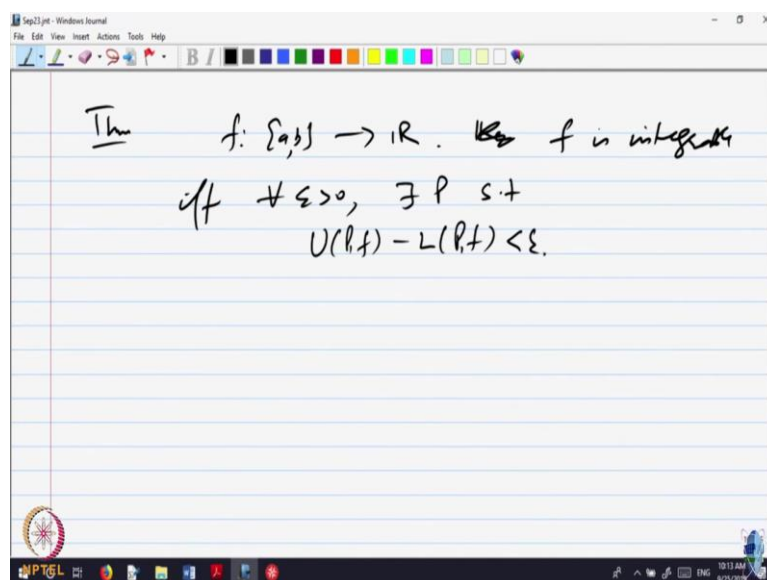 Sep23.jnt - Windows Journal
File Edit View Insert Actions Tools Help
B I
Thm f: [a,b] → IR. f is integrable
iff ∀ ε>0, ∃ P s.t
U(P,f) - L(P,f) < ε.
NPTEL
ENG
10:13 AM